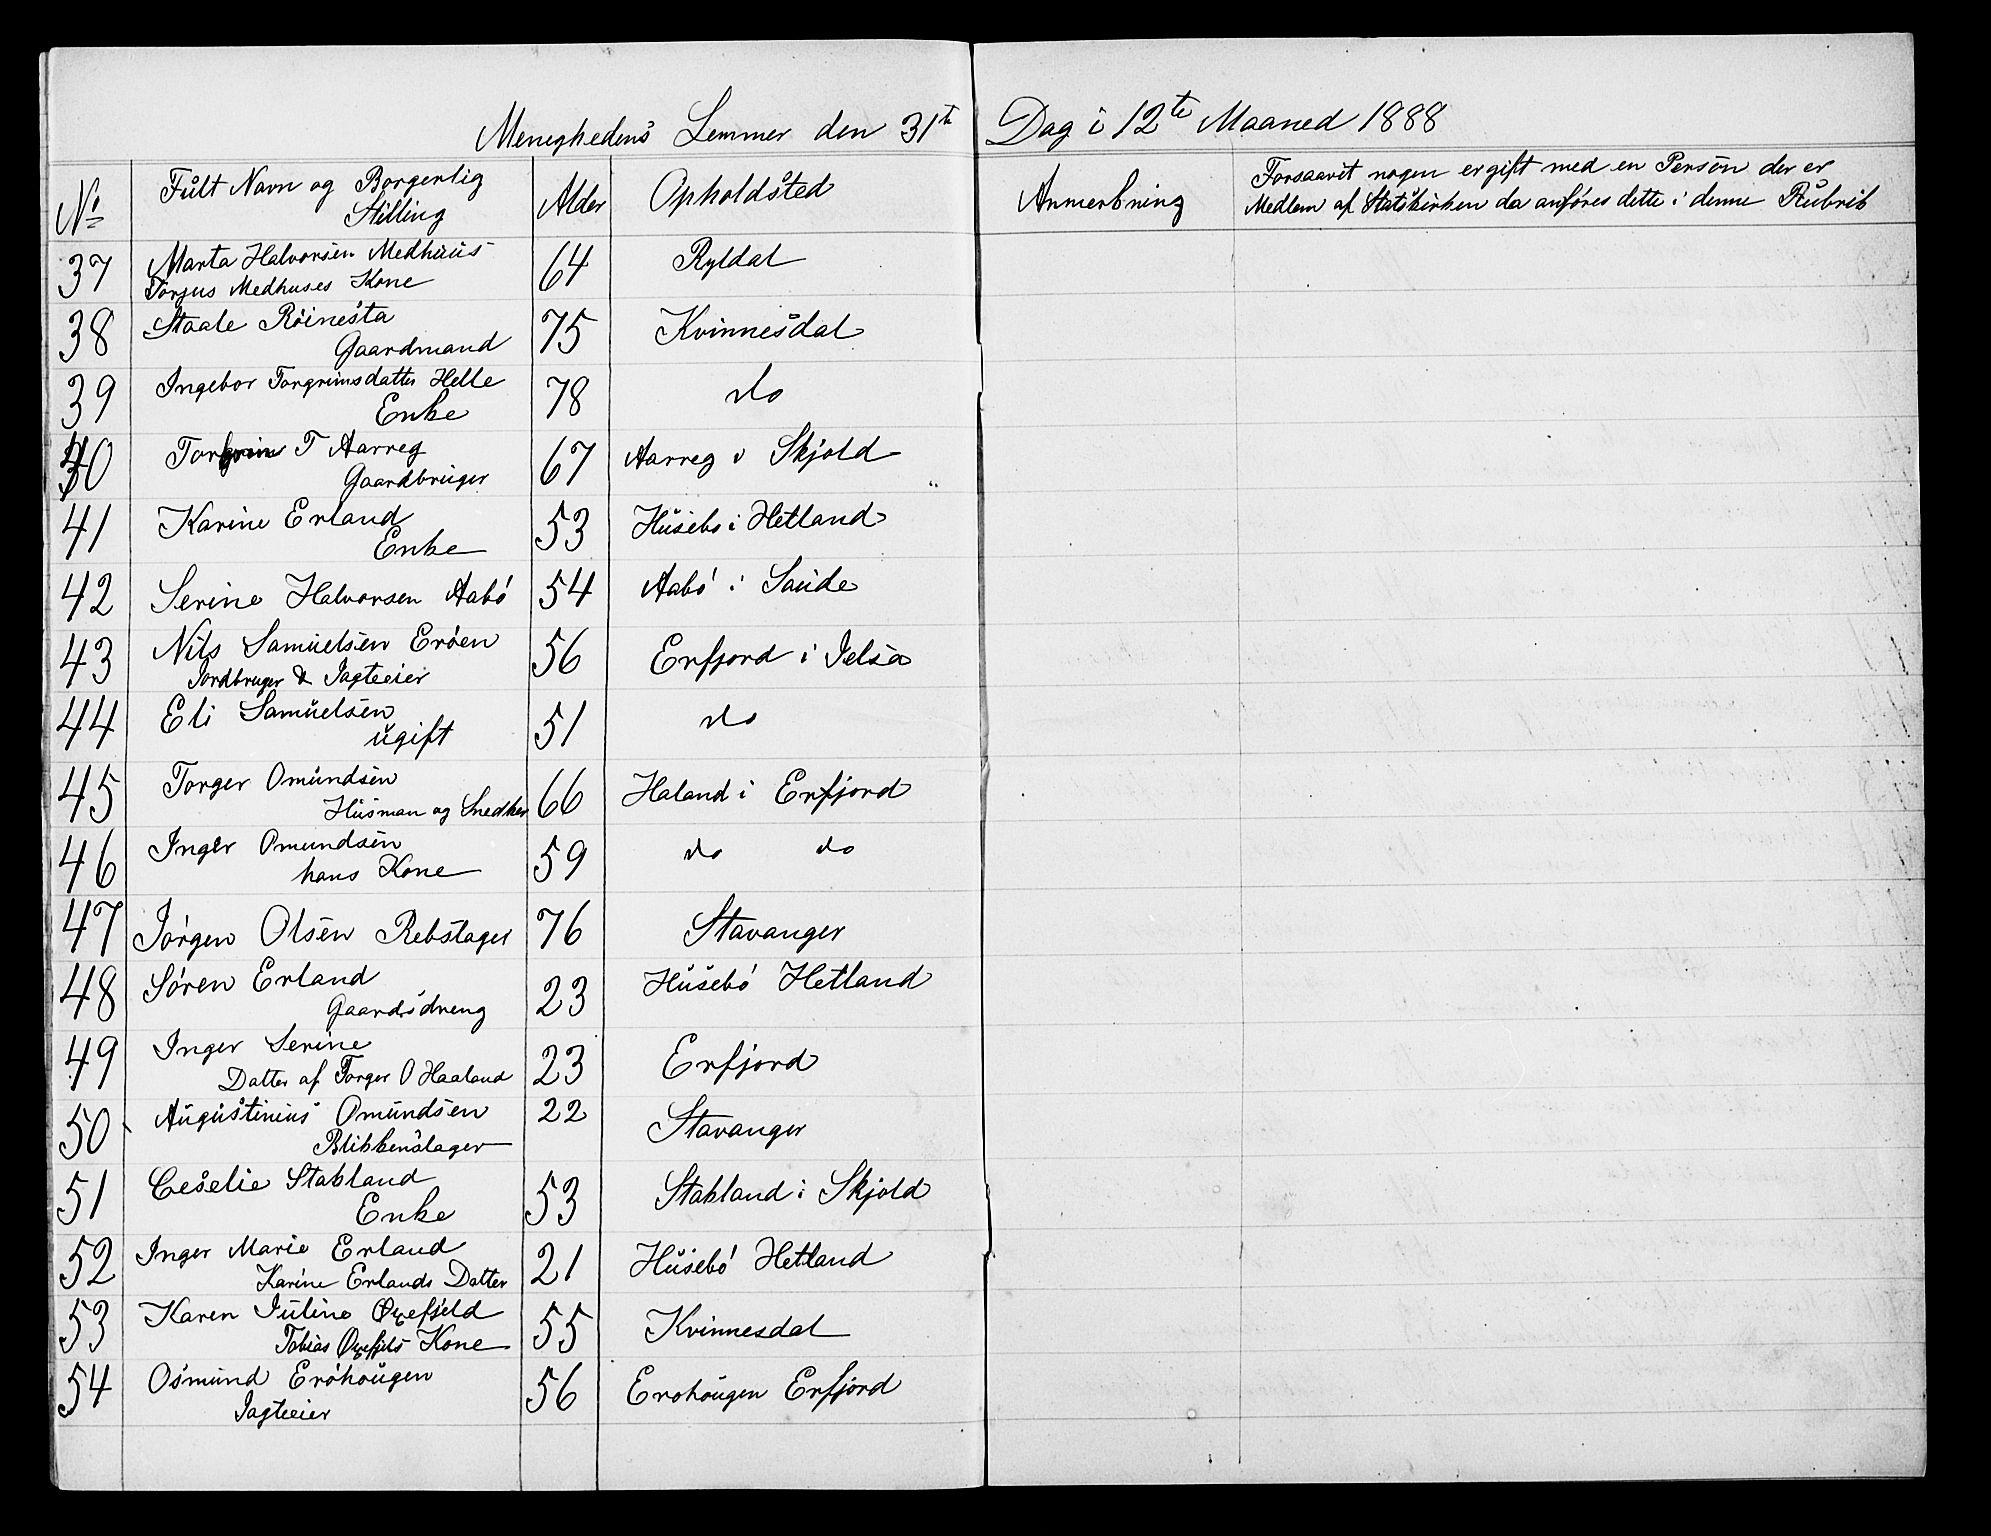 Menighedens Lemmer den 31te Dag i 12te Maaned 1888
No Fult Navn og Borgerlig Stilling Alder Opholdsted Anmerkning Forsaavit nogen er gift med en Person der er
Medlem af Statskirken da anføres dette i denne Rubrik
37 Marta Halvorsen Medhuus 64 Ryldal
Torjus Medhuses Kone
38 Staale Röinesta 75 Kvinnesdal
Gaardmand
39 Ingebor Torgrimsdatter Helle 78 do
Enke
40 T Aarreg 67 Aarreg i Skjold
Gaardbruger
41 Karine Erland 53 Husebo i Hetland
Enke
42 Serine Halvorsen Aabó 54 Aabó i Saude
43 Nils Samuelsen Eróen 56 Erfjord i Jelsa
Jordbruger & Jagteeier
44 Eli Samuelsen 51 do
ugift
45 Torger Omundsen 66 Haland i Erfjord
Husman og Snedker
46 Inger Omundsen 59 do do
hans Kone
47 Jórgen Olsen Rebslager 76 Stavanger
48 Sóren Erland 23 Husebó Hetland
Gaardsdreng
49 Inger Serine 23 Erfjord
Datter af Torger O Haaland
50 Augustinius Omundsen 22 Stavanger
Blikkenslager
51 Ceselie Stakland 53 Stakland i Skjold
Enke
52 Inger Marie Erland 21 Husebó Hetland
Karine Erlands Datter
53 Karen Juline 55 Kvinnesdal
Tobias Kone
54 Osmund Eróhougen 56 Erohougen Erfjord
Jagteeier